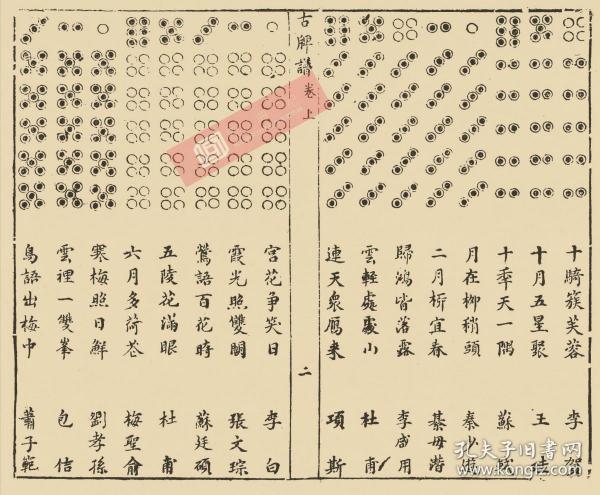 十騎簇芙蓉 李賀
十月五星聚 王
十秊天一隅 蘇
月在柳稍頭 秦少游
二月 宜春 綦毋潛
歸鴻皆落 李咸用
雲輕處處山 杜甫
連天衆鴈來 項斯
古牌譜 卷上
二
宮花爭笑日 李白
霞光照雙闕 張文琮
鶯語百花時 蘇廷碩
五陵花滿眼 杜甫
六月多荷花 梅聖俞
寒梅照日鮮 劉孝孫
雲裡一雙峯 包佶
鳥語出梅中 蕭子範
孔夫子旧书网